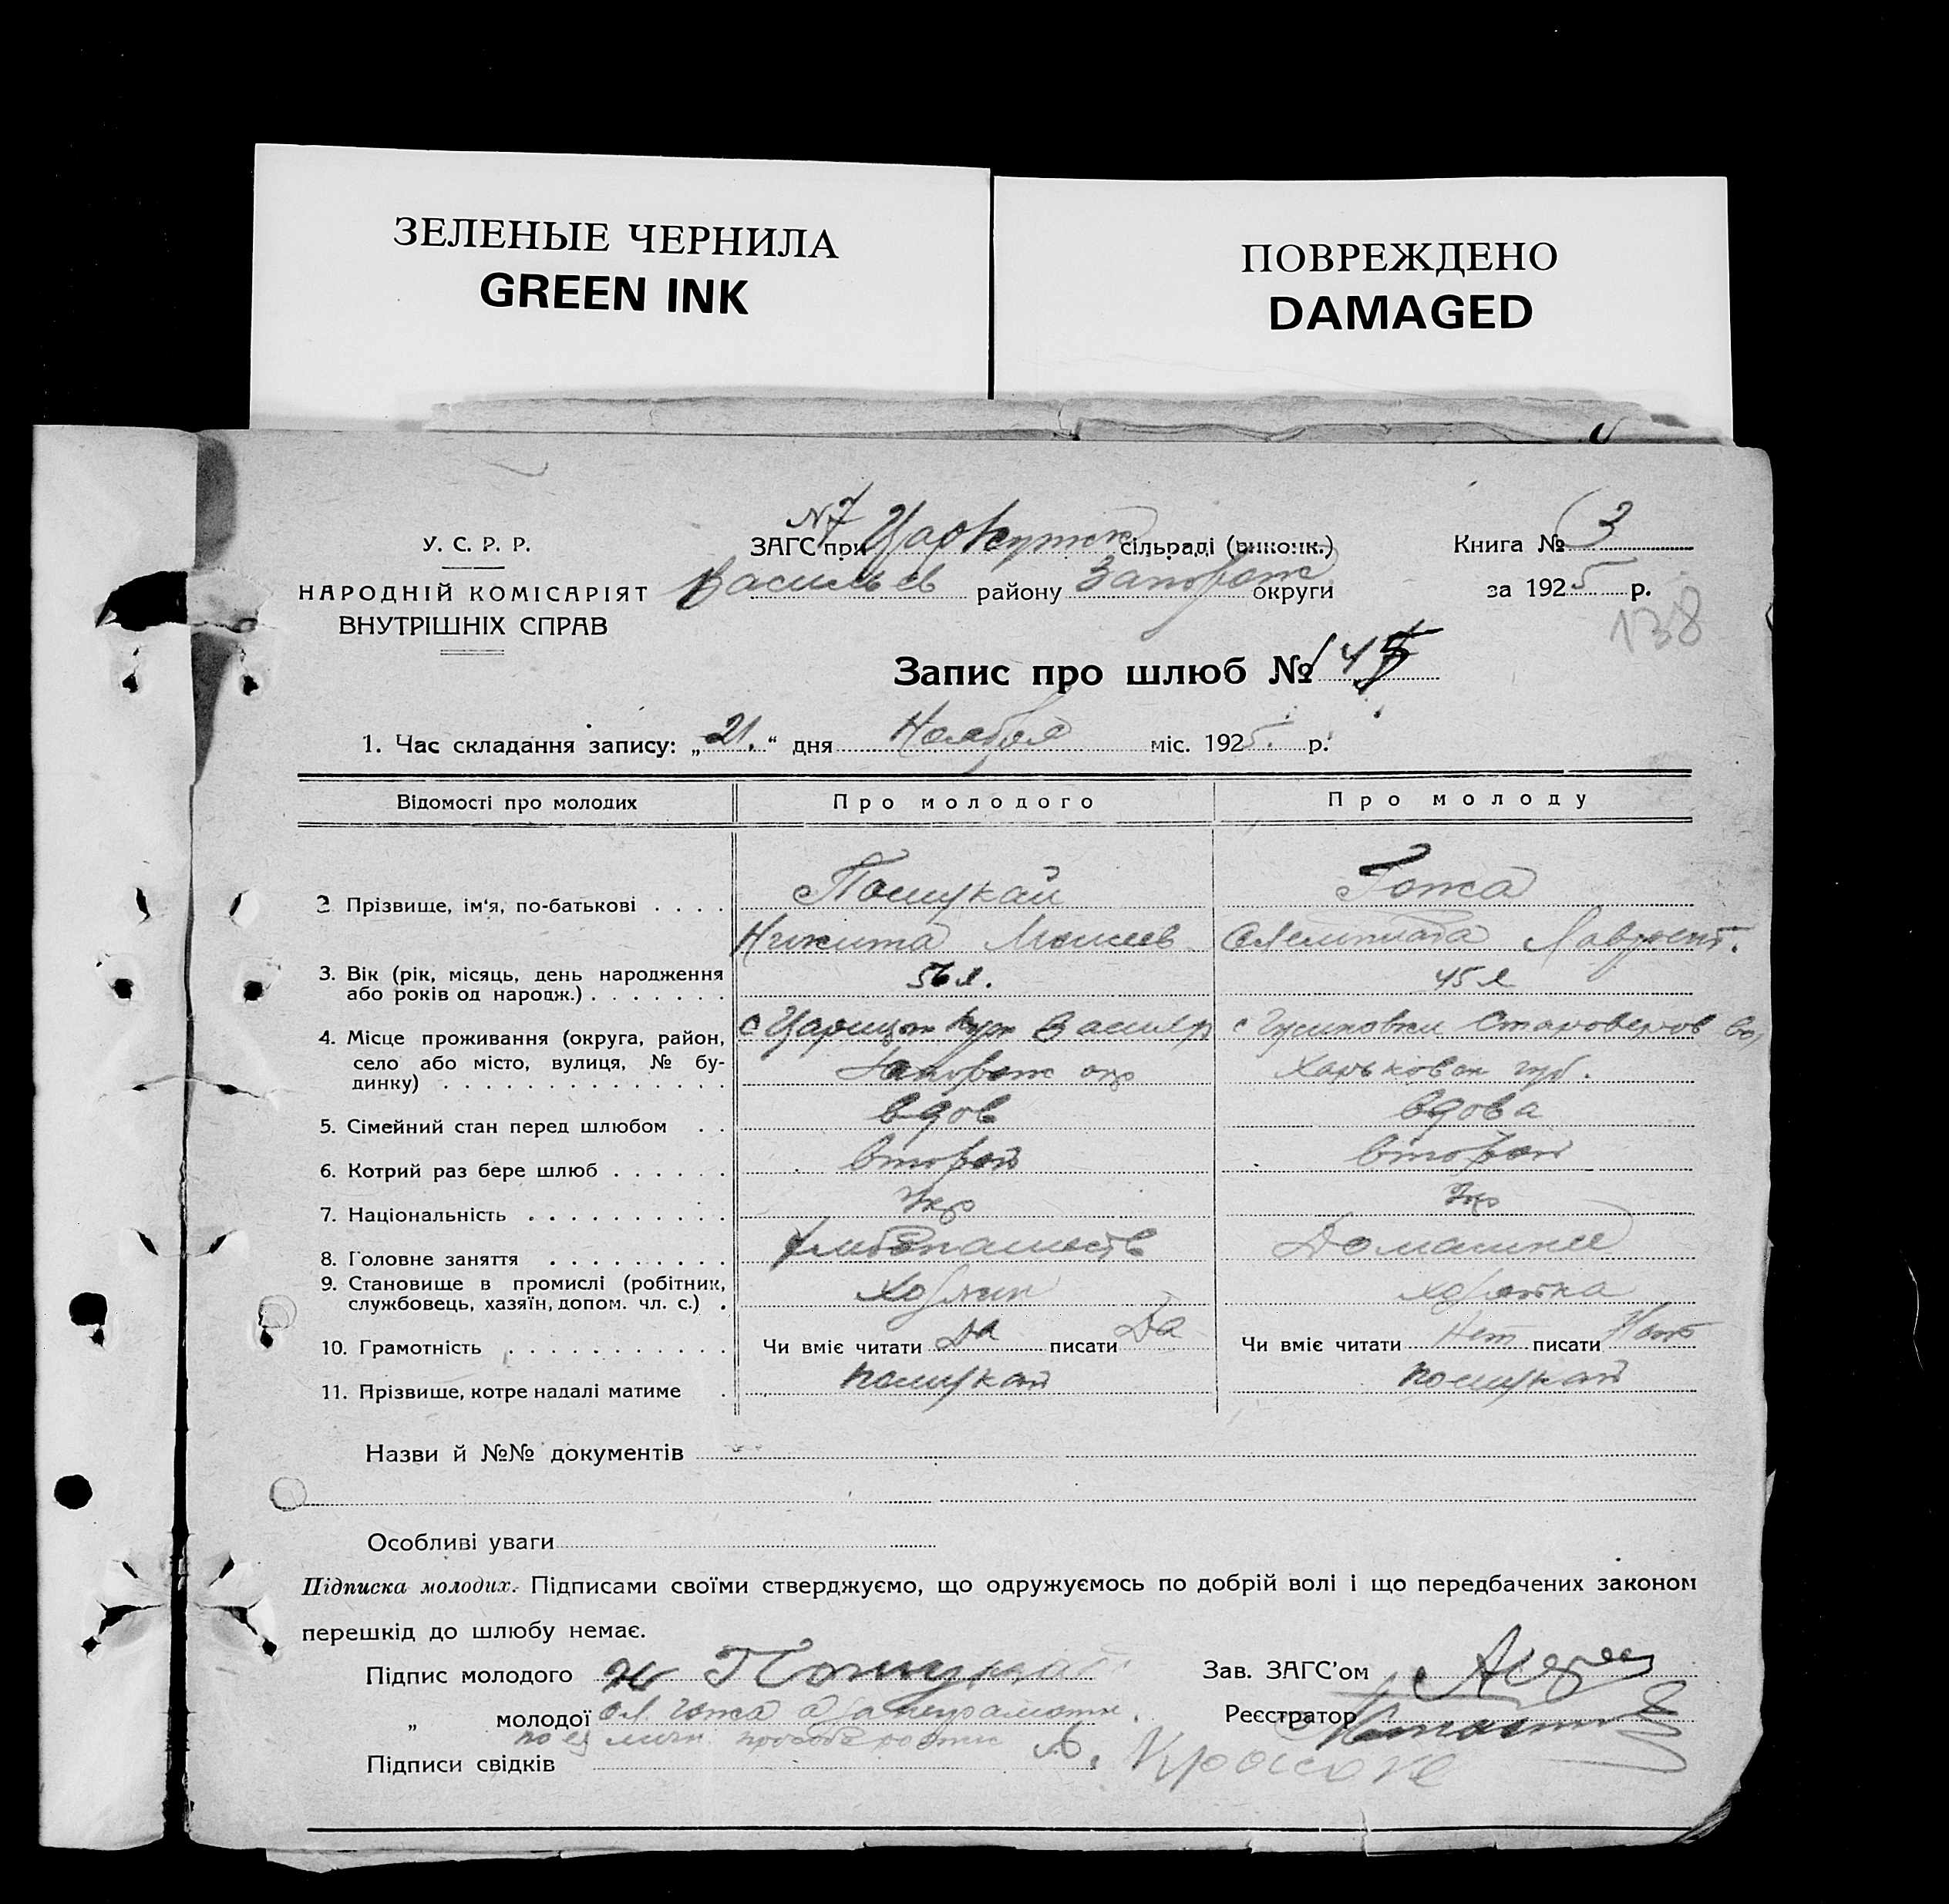 ЗЕЛЕНЫЕ ЧЕРНИЛА
GREEN INK
ПОВРЕЖДЕНО
DAMAGED
У. С. Р. Р.
НАРОДНІЙ КОМІСАРІЯТ
ВНУТРІШНІХ СПРАВ
N7
ЗАГС при Царкутск сільраді (виконк.)
Васильев району Запорож округи
Книга № 3
за 1925 р.
138
Запис про шлюб № 45
1. Час складання запису: „21.“ дня Ноября міс. 1925. р.
Відомості про молодих Про молодого Про молоду
2 Прізвище, ім‘я, по-батькові . . . . Гожа
Никита Моисеев Олемпиада Лаврент.
3. Вік (рік, місяць, день народження
або років од народж.) . . . . . . . 56 л. 45 л
4. Місце проживання (округа, район, с Василь с Гусиновки Староверов
село або місто, вулиця, № бу-
динку) . . . . . . . . . . . . . . Запорож окр Харьковск губ.
5. Сімейний стан перед шлюбом . . вдов вдова
6. Котрий раз бере шлюб . . . . . . второй второй
7. Національність . . . . . . . . . . Укр Укр
8. Головне заняття . . . . . . . . . Хлебопашеств Домашнее
9. Становище в промислі (робітник,
службовець, хазяїн, допом. чл. с.) . хозяин хозяйка
10. Грамотність . . . . . . . . . . . Чи вміє читати Да писати Да Чи вміє читати Нет писати Нет
11. Прізвище, котре надалі матиме .
Назви й №№ документів
Особливі уваги
Підписка молодих. Підписами своїми стверджуємо, що одружуємось по добрій волі і що передбачених законом
перешкід до шлюбу немає.
Підпис молодого
Зав. ЗАГС’ом
„ молодої Ол. Гожа а за неграмотн.
по ея личн. просьбе
Реєстратор
Підписи свідків